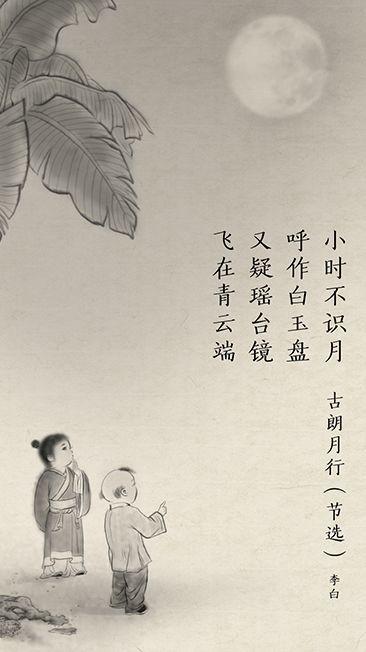 小时不识月
呼作白玉盘
又疑瑶台镜
飞在青云端
古朗月行（节选）
李白